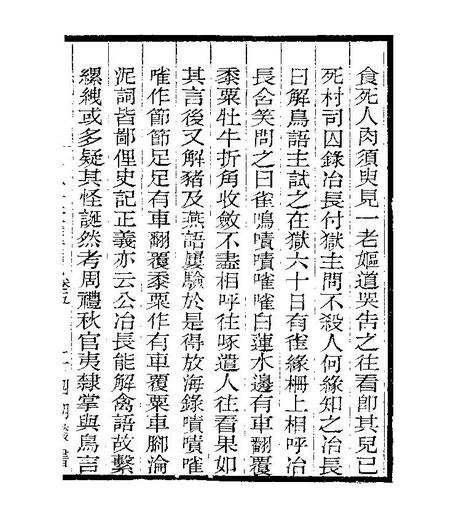 食死人肉須臾見一老嫗道哭告之往看卽其兒已
死村司囚錄冶長付獄主問不殺人何緣知之冶長
曰解鳥語主試之在獄六十日有雀緣柵上相呼冶
長含笑問之曰雀鳴嘖嘖唯唯白蓮水邊有車翻覆
黍粟牡牛折角收斂不盡相呼往啄遣人往看果如
其言後又解豬及燕語屢驗於是得放海錄嘖嘖唯
唯作節節足足有車翻覆黍粟作有車覆粟車腳淪
泥詞皆鄙俚史記正義亦云公冶長能解禽語故繫
縲絏或多疑其怪誕然考周禮秋官夷隸掌與鳥言